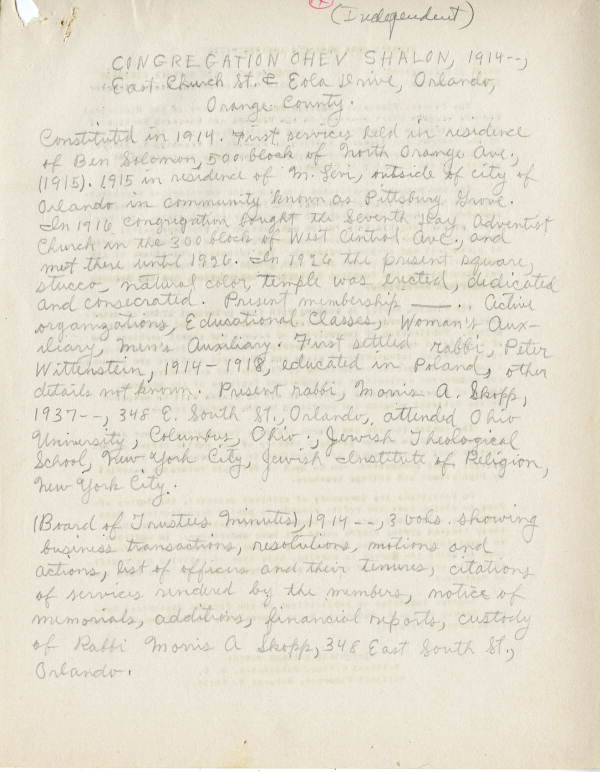 (Independent)
CONGREGATION OHEV SHALON, 1914--,
East Church St. & Eola Drive, Orlando,
Orange County.
Constituted in 1914. First services held in residence
of Ben Solomon, 500 block of North Orange Ave.,
(1915). 1915 in residence of M. Levi, outside of city of
Orlando in community known as Pittsburg Grove.
In 1916 congregation bought the Seventh Day Adventist
Church in the 300 block of West Central Ave., and
met there until 1926. In 1926 the present square,
stucco, natural color, temple was erected, dedicated
and consecrated. Present membership ——. Active
organizations, Educational Classes, Woman's Aux-
iliary, Men's Auxiliary. First settled rabbi, Peter
Wittenstein, 1914-1918, educated in Poland, other
details not known. Present rabbi, Morris A. Skopp,
1937--, 348 E. South St., Orlando, attended Ohio
University, Columbus, Ohio., Jewish Theological
School, New York City, Jewish Institute of Religion,
New York City.
(Board of Trustees Minutes), 1914--, 3 vols. showing
business transactions, resolutions, motions and
actions, list of officers and their tenures, citations
of services rendered by the members, notice of
memorials, additions, financial reports, custody
of Rabbi Morris A Skopp, 348 East South St.,
Orlando.